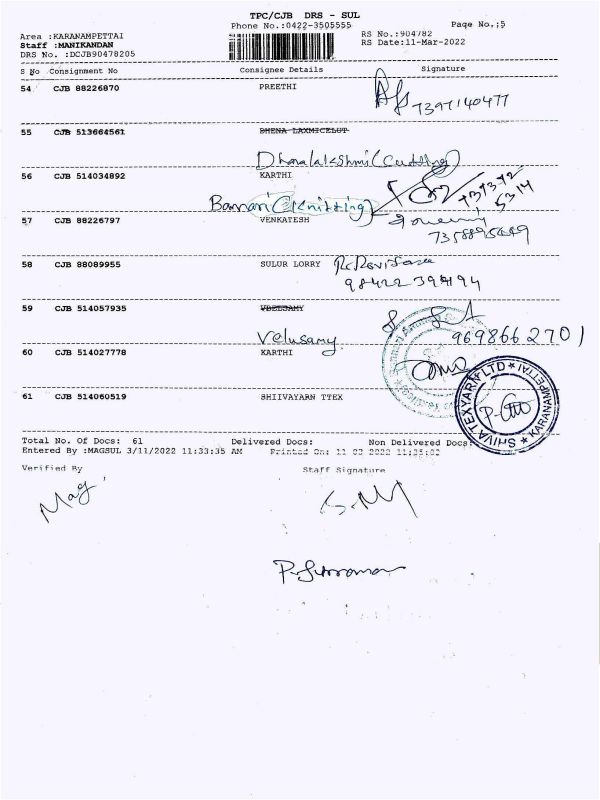 TPC/CJB DRS - SUL
Phone No.:0422-3505555 Page No.;5
Area :KARANAMPETTAI RS No.:904782
Staff :MANIKANDAN RS Date:11-Mar-2022
DRS No. :DCJB90478205
S No Consignment No Consignee Details Signature
54 CJB 88226870 PREETHI
7397140477
55 CJB 513664561 DHENA LAXMICELUT
Dhanalakshmi (Cudding)
56 CJB 514034892 KARTHI
Bannari (Knitting)
57 CJB 88226797 VENKATESH
58 CJB 88089955 SULUR LORRY
59 CJB 514057935 VBELSAMY
Velusamy 9698662701
60 CJB 514027778 KARTHI
61 CJB 514060519 SHIIVAYARN TTEX
SHIIVATEXYARN LTD ★ KARANAMPETTAI ★
Total No. Of Docs: 61 Delivered Docs: Non Delivered Docs:
Entered By :MAGSUL 3/11/2022 11:33:35 AM Printed On: 11 03 2022
Verified By Staff Signature
Mag